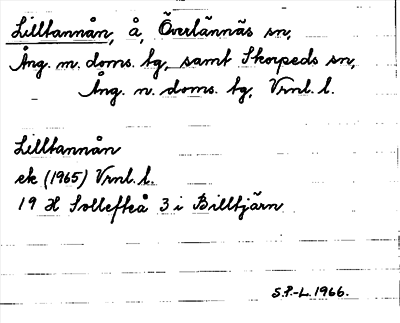 Lilltannån, å, Överlännäs sn,
Ång. m. doms. tg., samt Skorpeds sn,
Ång. n. doms. tg, Vrnl. l.
Lilltannån
ek (1965) Vrnl. l.
19 H Sollefteå 3 i Billtjärn
S.P.-L. 1966.